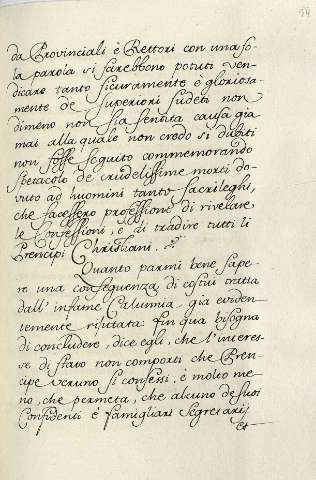 54
da Provinciali è Rettori con una so-
la parola si sarebbono potuti ven-
dicare tanto sicuramente è gloriosa-
mente de Superiori sudeti non
dimeno non sia sentita causa gia
mai alla quale non credo si dubiti
non fosse seguito commemorando
spetacolo de crudelissime morti do-
vuto ad huomini tanto sacrileghi,
che facessero professione di rivelare
le Confessioni, e di tradire tutti li
Prencipi Christiani.
Quanto parmi bene sape-
re una conseguenza di costui tratta
dall' infame Calumnia gia eviden-
temente rifiutata: fin qua bisogna
di concludere, dice egli, che l'interes-
se di stato non comporti che Pren-
cipe veruno si confessi, è molto me-
no, che permeta, che alcuno de suoi
Confidenti è famigliari Segretarij
et